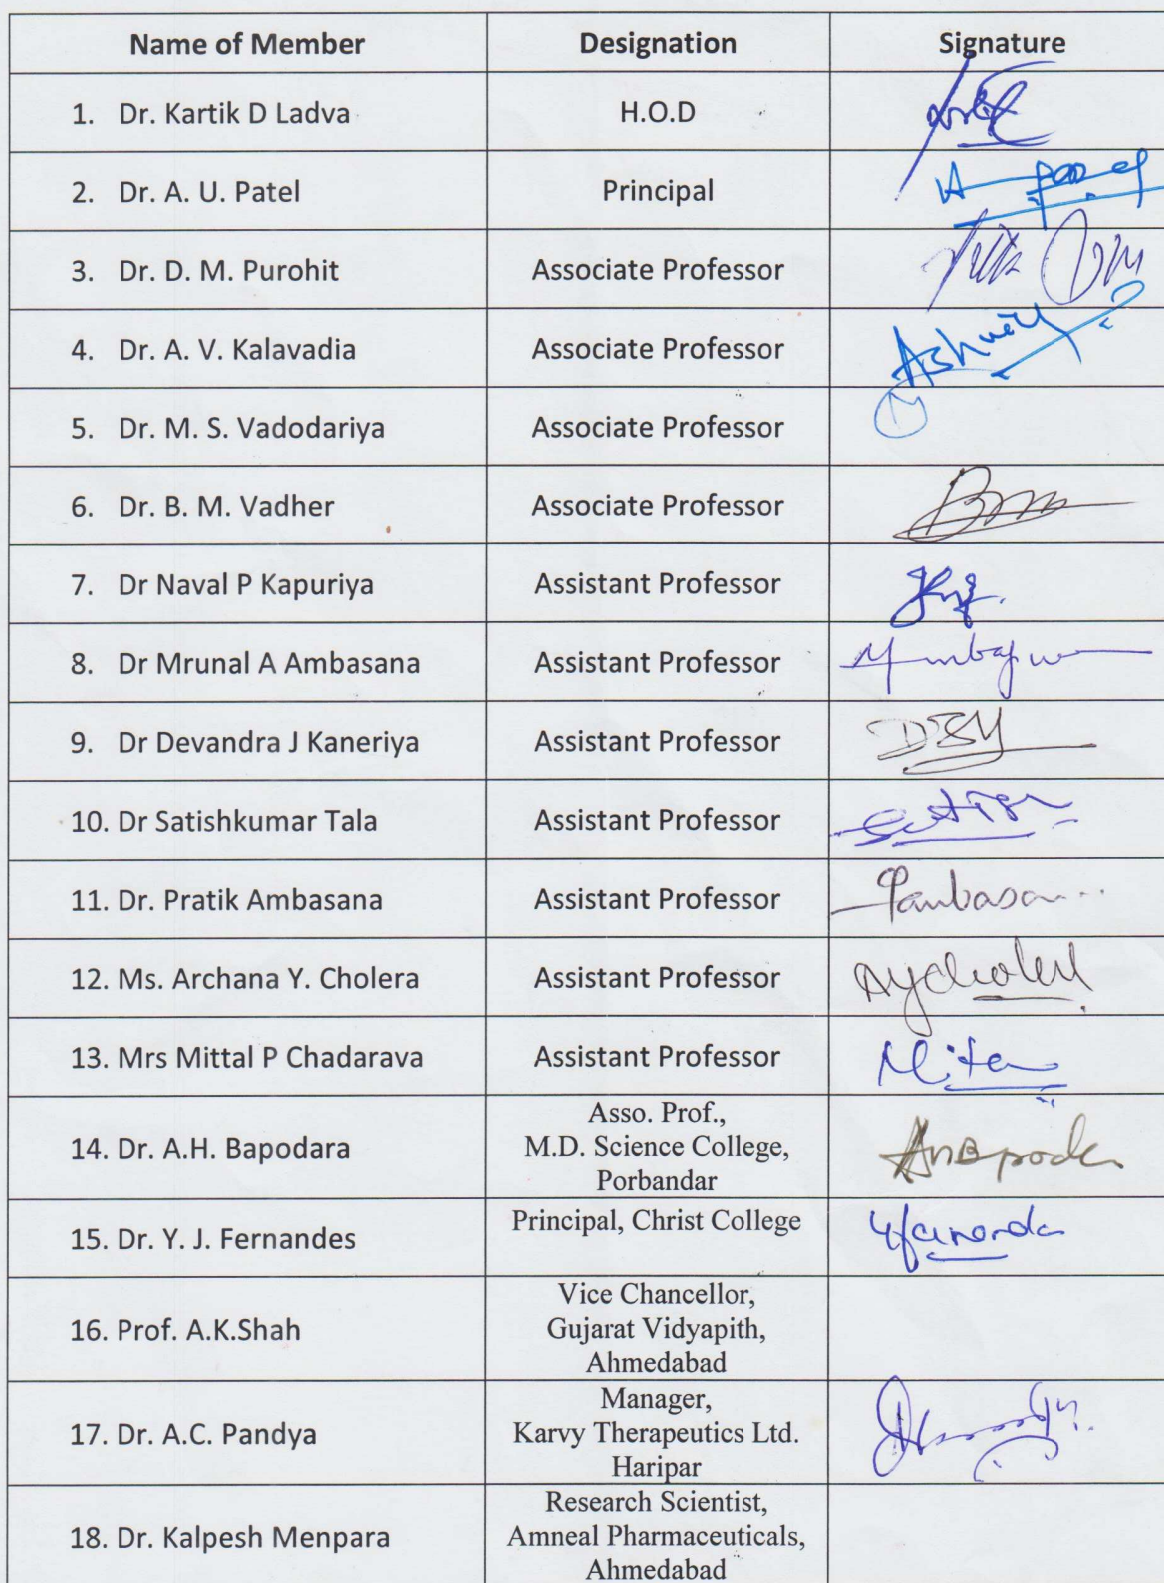 Name of Member Designation Signature
1. Dr. Kartik D Ladva H.O.D
2. Dr. A. U. Patel Principal
3. Dr. D. M. Purohit Associate Professor
4. Dr. A. V. Kalavadia Associate Professor
5. Dr. M. S. Vadodariya Associate Professor
6. Dr. B. M. Vadher Associate Professor
7. Dr Naval P Kapuriya Assistant Professor
8. Dr Mrunal A Ambasana Assistant Professor
9. Dr Devandra J Kaneriya Assistant Professor
10. Dr Satishkumar Tala Assistant Professor
11. Dr. Pratik Ambasana Assistant Professor
12. Ms. Archana Y. Cholera Assistant Professor
13. Mrs Mittal P Chadarava Assistant Professor
14. Dr. A.H. Bapodara
Asso. Prof.,
M.D. Science College,
Porbandar
15. Dr. Y. J. Fernandes Principal, Christ College
16. Prof. A.K.Shah
Vice Chancellor,
Gujarat Vidyapith,
Ahmedabad
17. Dr. A.C. Pandya
Manager,
Karvy Therapeutics Ltd.
Haripar
18. Dr. Kalpesh Menpara
Research Scientist,
Amneal Pharmaceuticals,
Ahmedabad